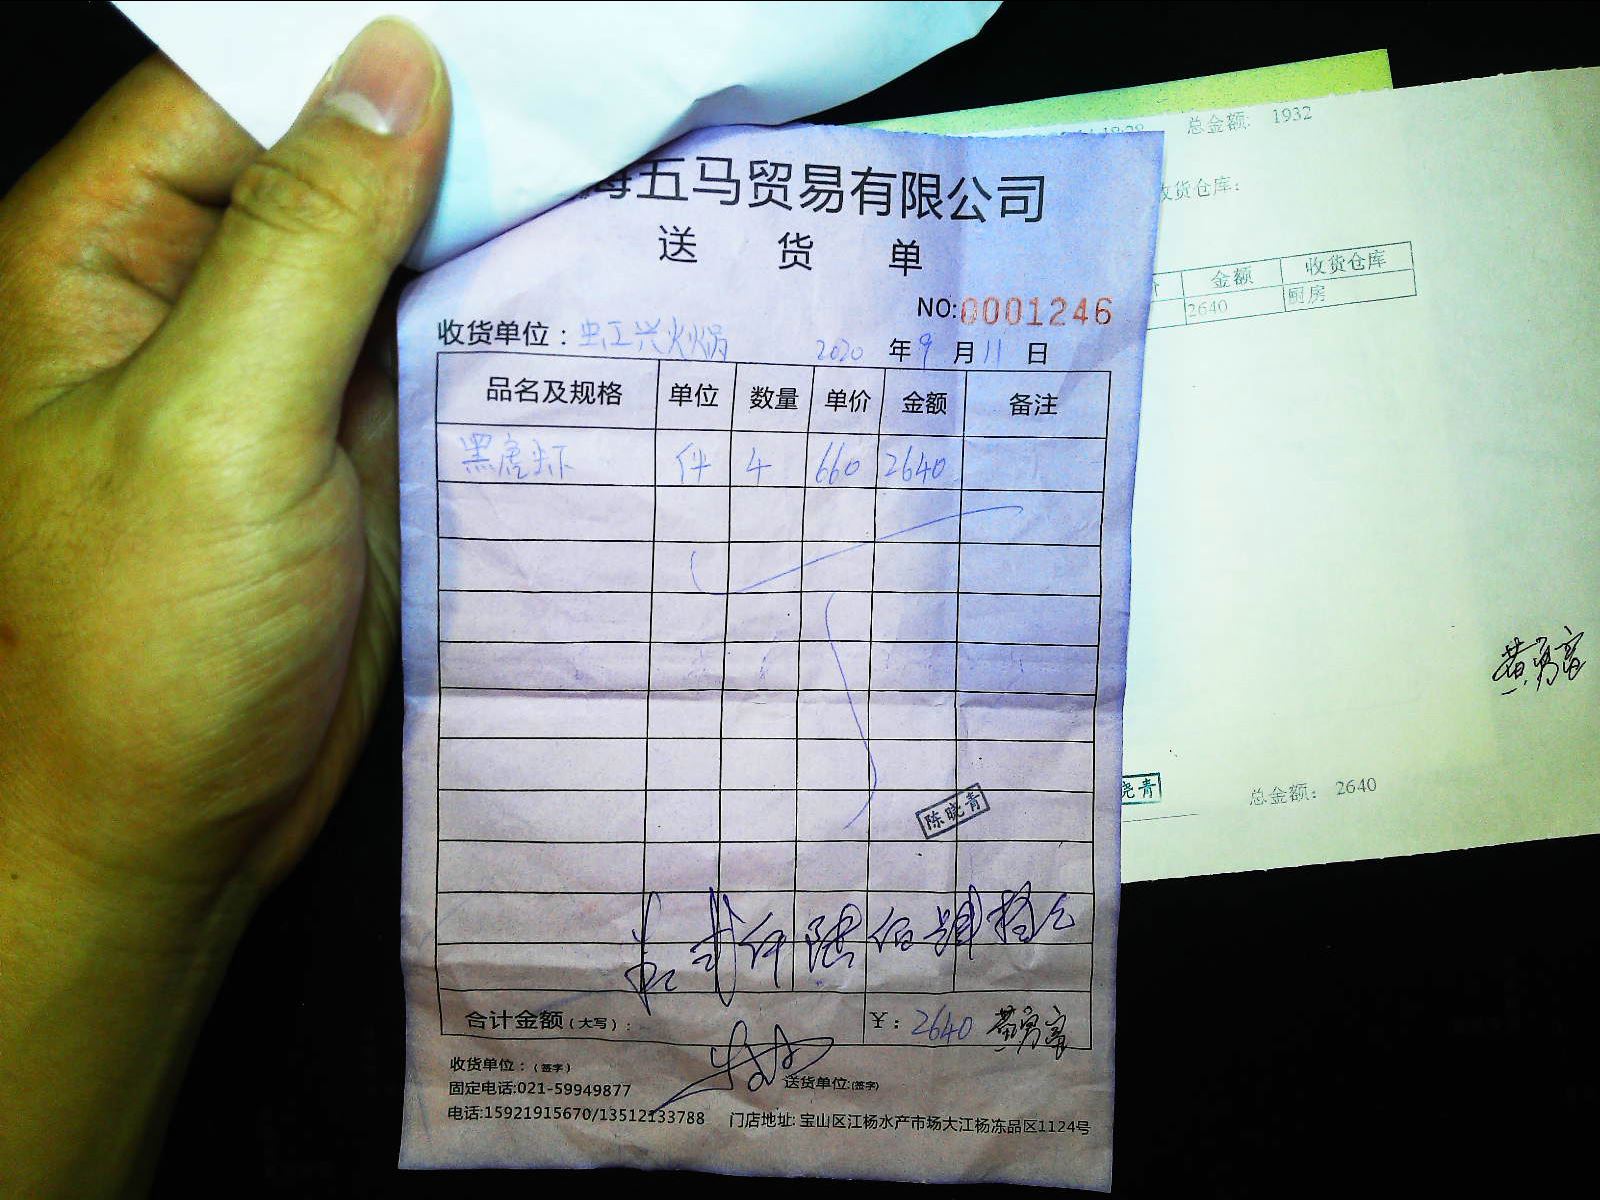 海五马贸易有限公司
送 货 单
NO:0001246
收货单位：虹工兴火火锅 2020 年 9 月 11 日
品名及规格 单位 数量 单价 金额 备注
黑虎虾 件 4 660 2640
陈晓青
贰仟陆佰肆拾元
合计金额（大写）： ¥：2640 黄勇富
收货单位：（签字） 送货单位:(签字)
固定电话:021-59949877
电话:15921915670/13512133788 门店地址: 宝山区江杨水产市场大江杨冻品区1124号
18:28 总金额: 1932
收货仓库:
金额 收货仓库
2640 厨房
黄勇富
晓青 总金额: 2640